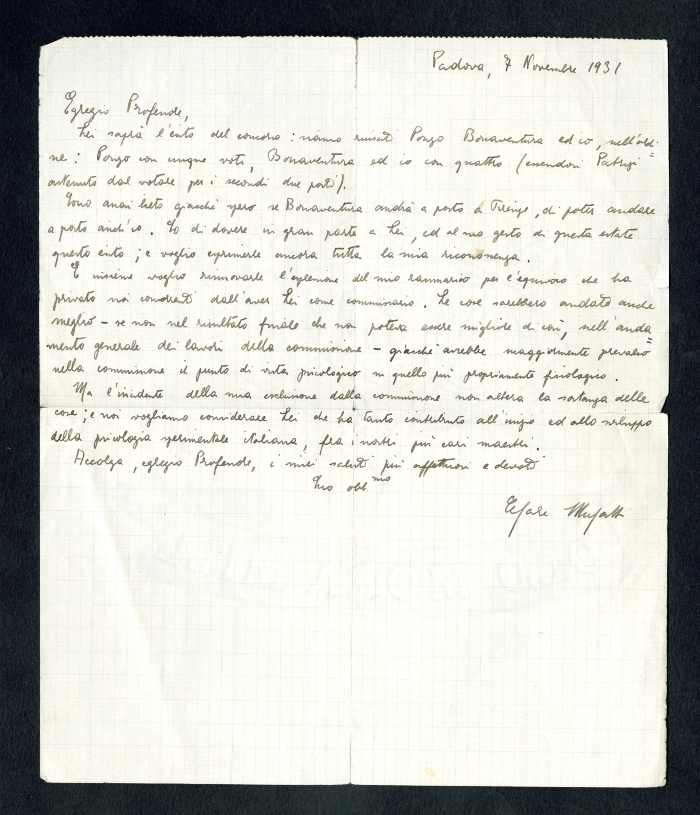 Padova, 7 Novembre 1931
Egregio Professore,
Lei saprà l'esito del concorso: siamo riusciti Ponzo Bonaventura ed io, nell'ordi=
ne: Ponzo con cinque voti, Bonaventura ed io con quattro (essendosi Patrizi
astenuto dal votare per i secondi due posti).
Sono assai lieto giacchè spero se Bonaventura andrà a posto a Firenze, di poter andare
a posto anch'io. Io di dovere in gran parte a Lei, ed al suo gesto di questa estate
questo esito; e voglio esprimerle ancora tutta la mia riconoscenza.
E insieme voglio rinnovarle l'espressione del mio rammarico per l'equivoco che ha
privato noi concorrenti dall'aver Lei come commissario. Le cose sarebbero andate anche
meglio - se non nel risultato finale che non poteva essere migliore di così, nell'anda=
mento generale dei lavori della commissione - giacchè avrebbe maggiormente prevalso
nella commissione il punto di vista psicologico su quello più propriamente fisiologico.
Ma l'incidente della sua esclusione dalla commissione non altera la sostanza delle
cose; e noi vogliamo considerare Lei che ha tanto contribuito all'inizio ed allo sviluppo
della psicologia sperimentale italiana, fra i nostri più cari maestri.
Accolga, egregio Professore, i miei saluti più affettuosi e devoti
Suo obb.mo
Cesare Musatti